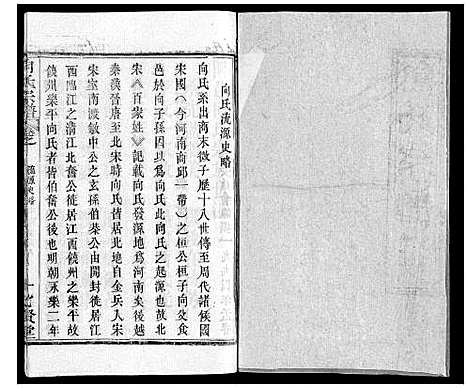 向氏流源史略
向氏系出商末微子歷十八世傳至周代諸候國
宋國(今河南商邱一帶)之桓公桓子向父食
邑於向子孫因以爲向氏此向氏之起源也後越
宋《百家姓》記載向氏發源地爲河南矣
秦漢晉唐至北宋時向氏皆居北地自金兵人宋
宋室南渡敏中公之玄孫伯柴公由開封徙居江
西臨江之清江北喬公徙居江西饒州之樂平故
饒州樂平向氏者皆伯奮公後也明朝永樂二年
流源史略